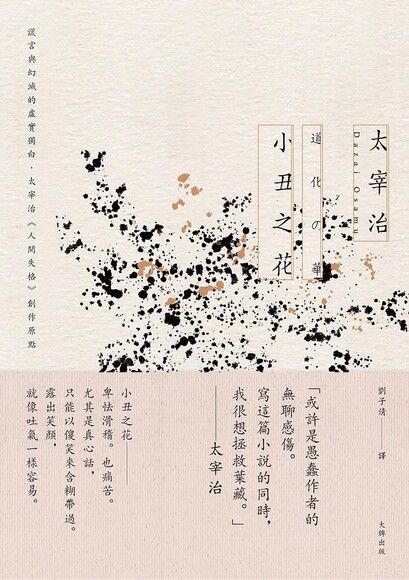 太宰治
Dazai Osamu
道化の華
小丑之花
謊言與幻滅的虛實獨白．太宰治《人間失格》創作原點
劉子倩──譯
大牌出版
「或許是愚蠢作者的
無聊感傷。
寫這篇小說的同時，
我很想拯救葉藏。」
──太宰治
小丑之花──
卑怯滑稽。也痛苦。
尤其是真心話，
只能以傻笑來含糊帶過。
露出笑顏，
就像吐氣一樣容易。